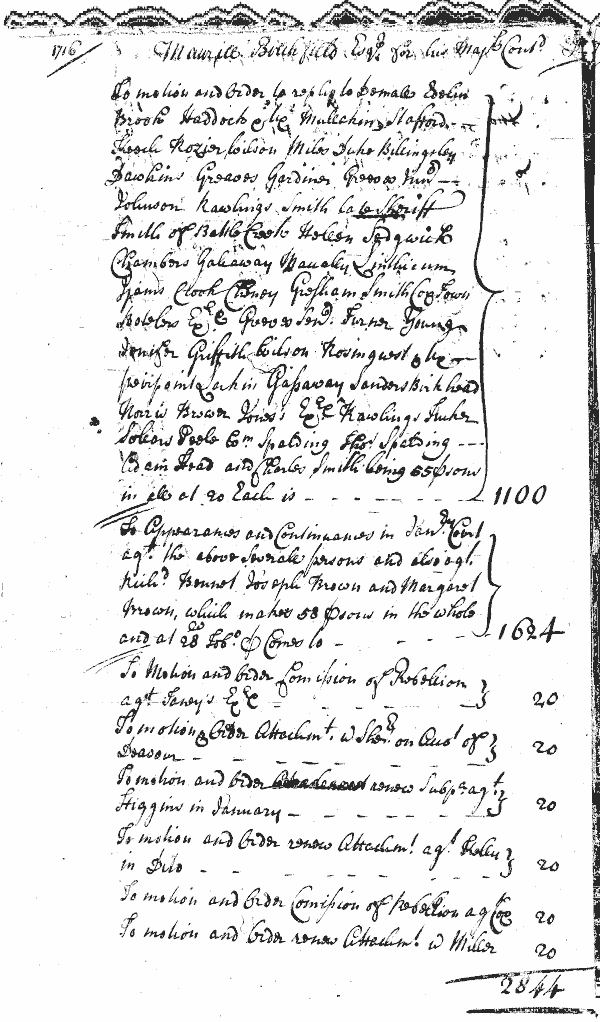 1716 Maurice Birchfield Esqr. for his Majts Cont Dr
To motion and Order to reply to Demale Evelin
Brook Haddock & Ux Mullakin Stafford
Keech Rozier Wilson Miles Duke Billingsley
Dawkins Greaves Gardiner Greeves Junr
Johnson Rawlings Smith late Sheriff
Smith of Battle Creek Hellen Sedgwick
Chambers Galiaway Linthicum
Crook Cheney Gresham Smith Cox Town
Botelers Exrs Greeves Senr. Turner Young
Jenifer Griffith Wilson Rosinquest & Ux
Lackin Gassaway Sanders Birkhead
Norris Brewer Jones's Exrs Rawlings Tucker
Sollers Peele Wm Spalding Thos Spalding
Adam Head and Charles Smith being 55 psons
in all at 20 Each is 1100
To Appearances and Continuances in Janry Court
agt. the above severall persons and also agt.
Richd Bennet Joseph Brown and Margaret
Brown, which makes 58 psons in the whole
and at 28 Tobo. p Comes to 1624
To Motion and Order Comission of Rebellion
agt Taney's Exrs 20
To motion & Order Attachmt. w Sher on of
Deavour 20
To motion and Order renew Subp agt
Higgins in January 20
To motion and Order renew Attachmt. agt. Kelly
in Ditto 20
To motion and Order Comission of Rebellion agt Cox 20
To motion and Order renew Attachmt. w Miller 20
2844